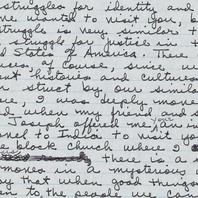 struggles for identity and
we wanted to visit you, b
struggle is very similar t
struggle for justice in t
ted States of America. There
ces, of course, since w
ent histories and cultures
n struck by our similar
re, I was deeply move
d when my friend and s
Joseph offered me, an
onel to India to visit yo
e black church where I
there is a
moves in a mysterious
y that when good things
en to the people we can